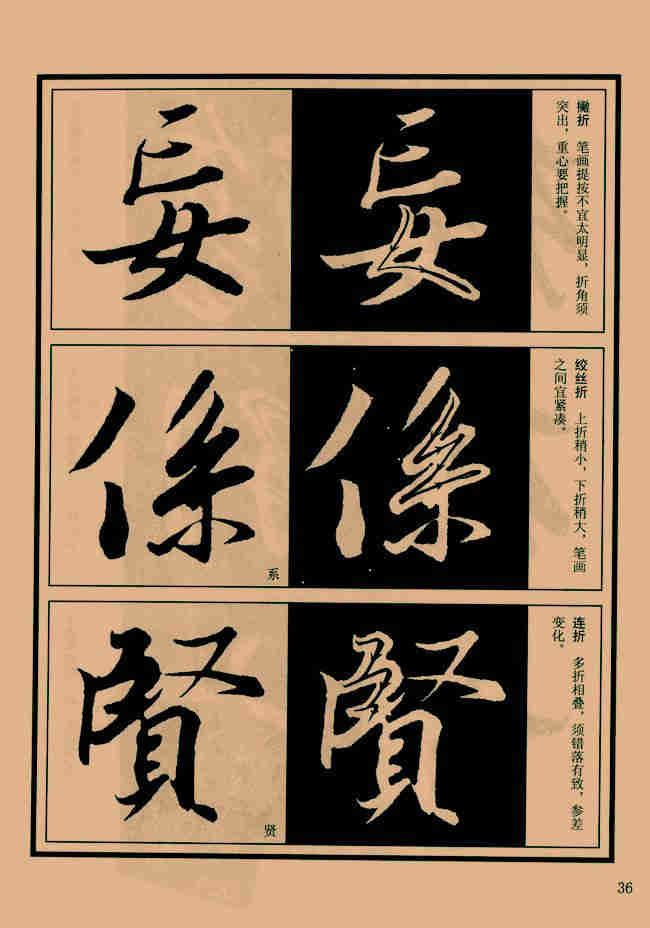 撇折 笔画提按不宜太明显，折角须
突出，重心要把握。
妄
妄
绞丝折 上折稍小，下折稍大，笔画
之间宜紧凑。
係
係
系
连折 多折相叠，须错落有致，参差
变化。
賢
賢
贤
36